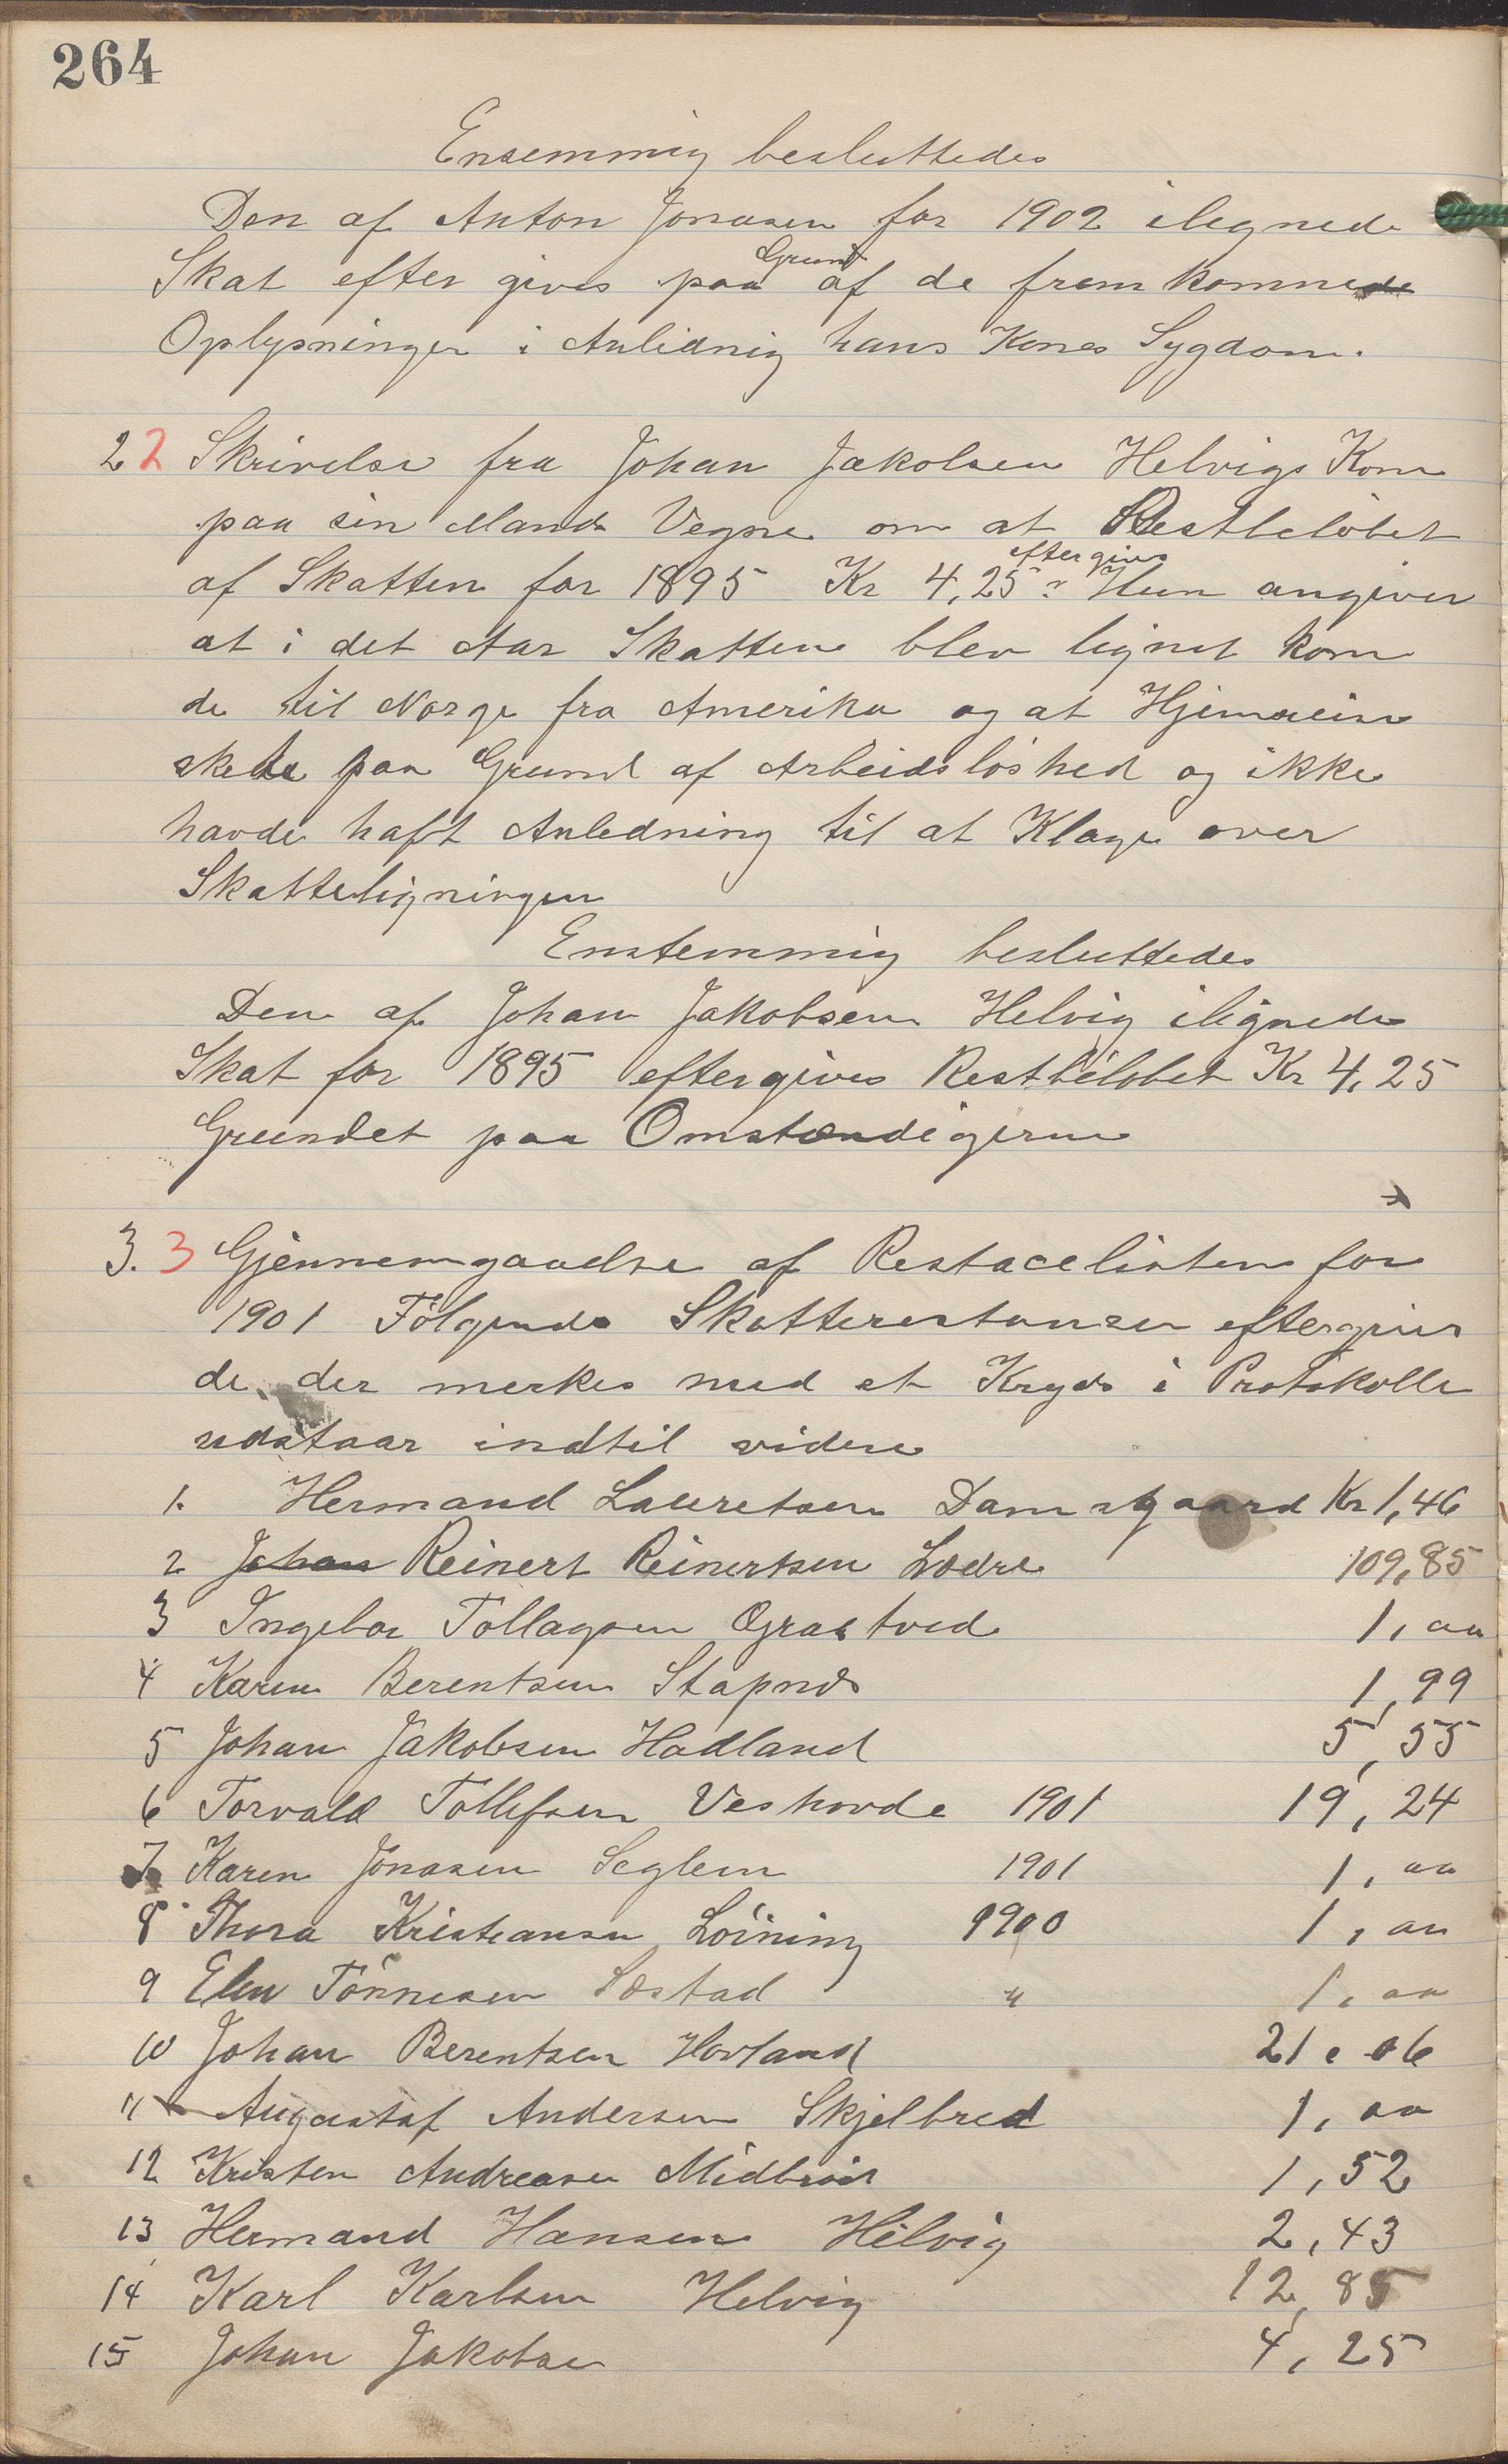 264
Ensemmig besluttedes
Den af Anton Jonasen for 1902 ilegnede
Skat efter gives paa Grund af de fremkomnede
Oplysninger i Anlidnig hans Kones Sygdom.
2 2 Skrivelse fra Johan Jakolsen Helvigs Kone
paa sin Mands Vegne om at Restbeløbet
af Skatten for 1895 Kr 4,25 eftergives Hun angiver
at i det Aar Skatten blev lignet kom
de til Norge fra Amerika og at Hjemreise
skede paa Grund af Arbeidsløshed og ikke
havde haft Anledning til at Klage over
Skatteligningen
Enstemmig besluttedes
Den af Johan Jakobsen Helvig ilignede
Skat for 1895 eftergives Restbeløbet Kr 4,25
Grundet paa Omstændigerne
3. 3 Gjennemgaaelse af Restacelisten for
1901 Følgende Skatterestanser eftergives
de der merkes med et Kryds i Protokolle
udstaar indtil videre
1. Hermand Lauretsen Damsgaard Kr 1,46
2 Johan Reinert Reinertsen Lædre 109,85
3 Ingebor Tollagsen Øgrastved 1, 00
4 Karen Berentsen Stapnes 1,99
5 Johan Jakobsen Hadland 5,55
6 Torvald Tollefsen Veshovde 1901 19,24
7 Karen Jonasen Seglem 1901 1, 00
8 Thora Kristiansen Løining 1900 1, 00
9 Elen Tønnesen Sæstad " 1, 00
10 Johan Berentsen Hovland 21, 06
11 Augustaf Andersen Skjelbred 1, 00
12 Kristen Andreasen Midbrød 1,52
13 Hermand Hansen Helvig 2,43
14 Karl Karlsen Helvig 12,85
15 Johan Jakobse 4,25